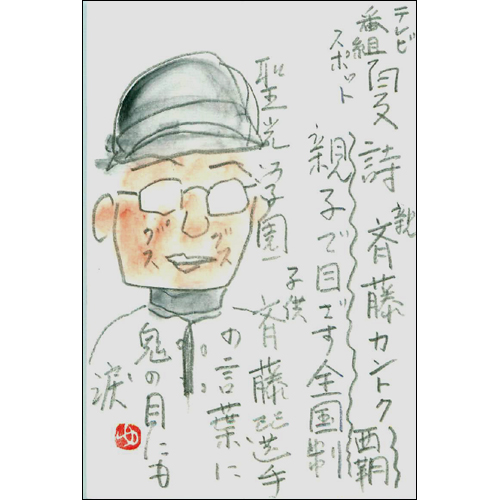 テレビ
番組
スポット
夏詩
親 斉藤カントク
親子で目ざす全国制覇
聖光学園
子供 斉藤 選手
の言葉に
鬼の目にも
涙
グス
グス